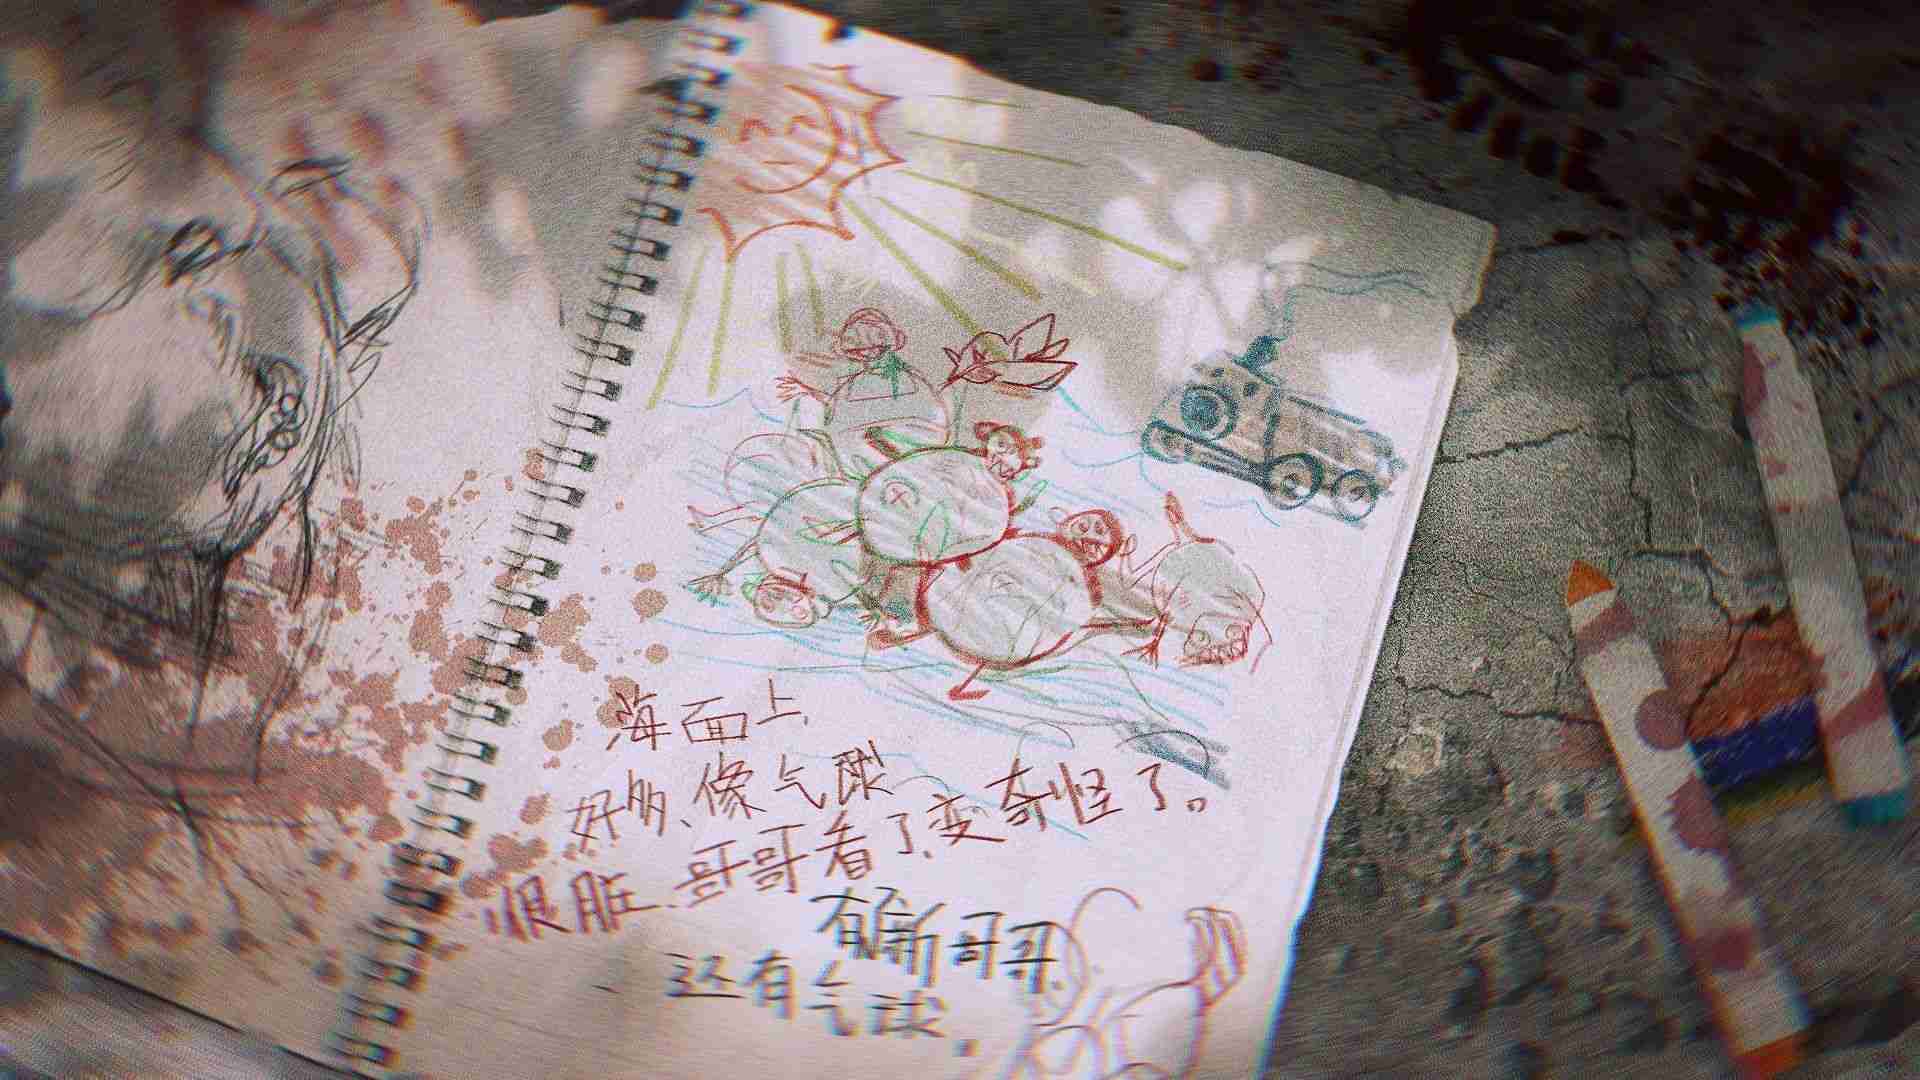 海面上
好多、像气球
很脏、哥哥看了、变奇怪了。
有新哥哥、
还有气球、